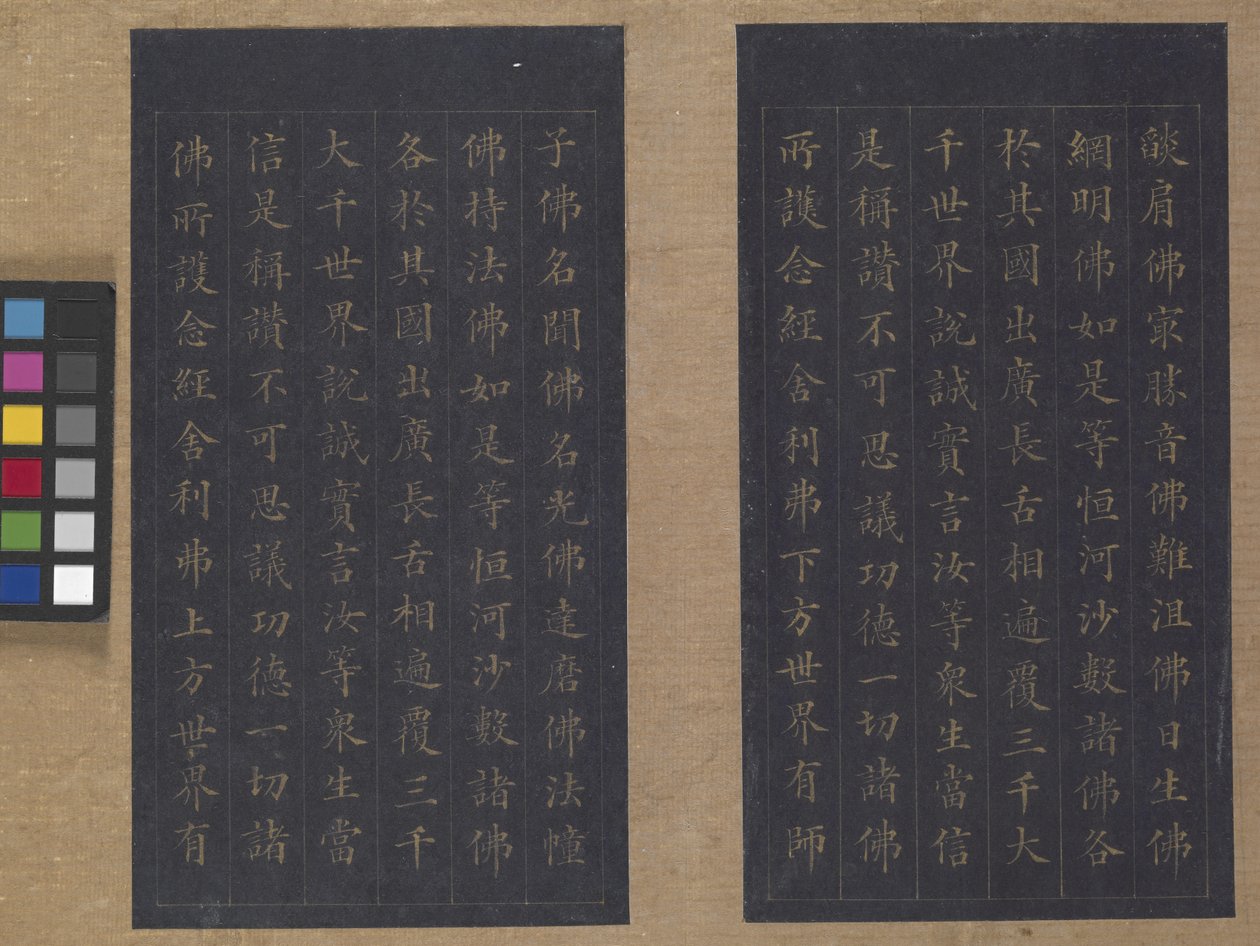 燄肩佛冣勝音佛難沮佛日生佛
網明佛如是等恒河沙數諸佛各
於其國出廣長舌相遍覆三千大
千世界說誠實言汝等衆生當信
是稱讚不可思議功德一切諸佛
所護念經舍利弗下方世界有師
子佛名聞佛名光佛達磨佛法幢
佛持法佛如是等恒河沙數諸佛
各於其國出廣長舌相遍覆三千
大千世界說誠實言汝等衆生當
信是稱讚不可思議功德一切諸
佛所護念經舍利弗上方世界有